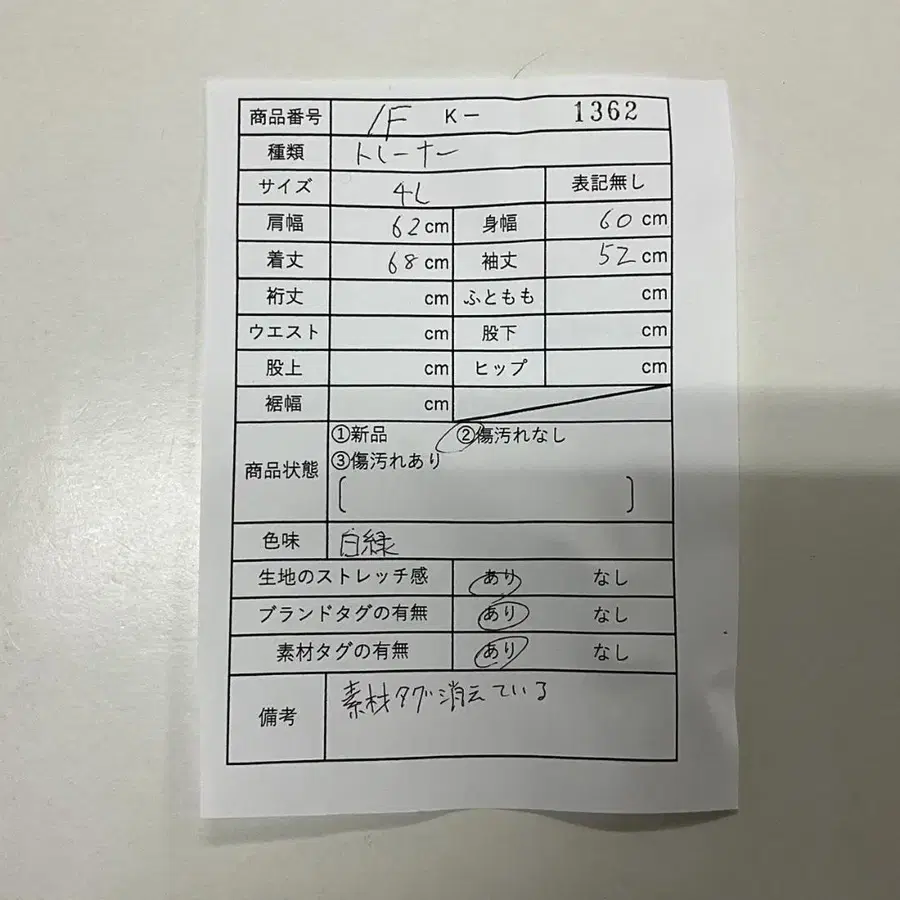 商品番号 1F K− 1362
種類 トレーナー
サイズ 4L 表記無し
肩幅 62 cm 身幅 60 cm
着丈 68 cm 袖丈 52 cm
裄丈 cm ふともも cm
ウエスト cm 股下 cm
股上 cm ヒップ cm
裾幅 cm
商品状態 ①新品 ②傷汚れなし
③傷汚れあり
色味 白緑
生地のストレッチ感 あり なし
ブランドタグの有無 あり なし
素材タグの有無 あり なし
備考 素材タグ消えている